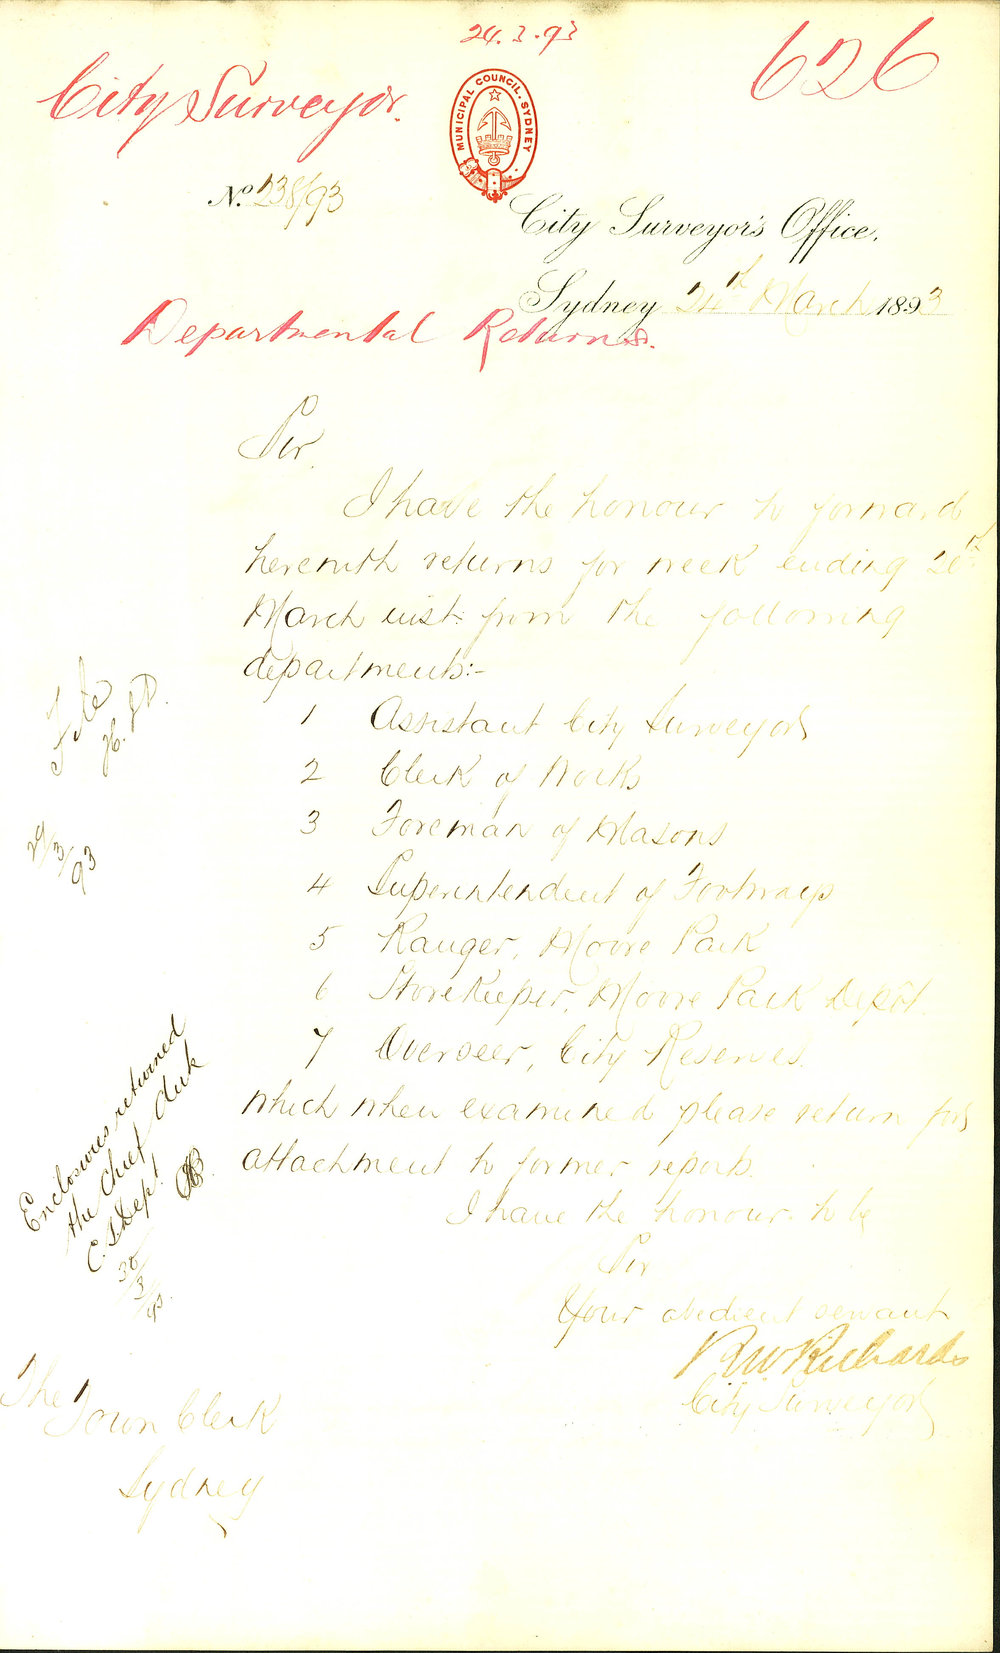 24.3.93
626
City Surveyor.
MUNICIPAL COUNCIL. SYDNEY
No. 238/93
City Surveyor's Office.
Sydney 24th March 1893
Departmental Returns.
Sir,
I have the honour to forward
herewith returns for week ending
March inst. from the following
departments:-
1 Assistant City Surveyor
2 Clerk of Works
3 Foreman of Masons
4 Superintendent of Footways
5 Ranger, Moore Park
6 Storekeeper, Moore Park Depôt.
7 Overseer, City Reserves.
which when examined please return for
attachment to former reports.
I have the honour to be
Sir
Your obedient servant
R W Richards
City Surveyor
The
Town Clerk
Sydney
File
29/3/93
Enclosures returned
the Chief Clerk
C.S. Dept
30/3/93.